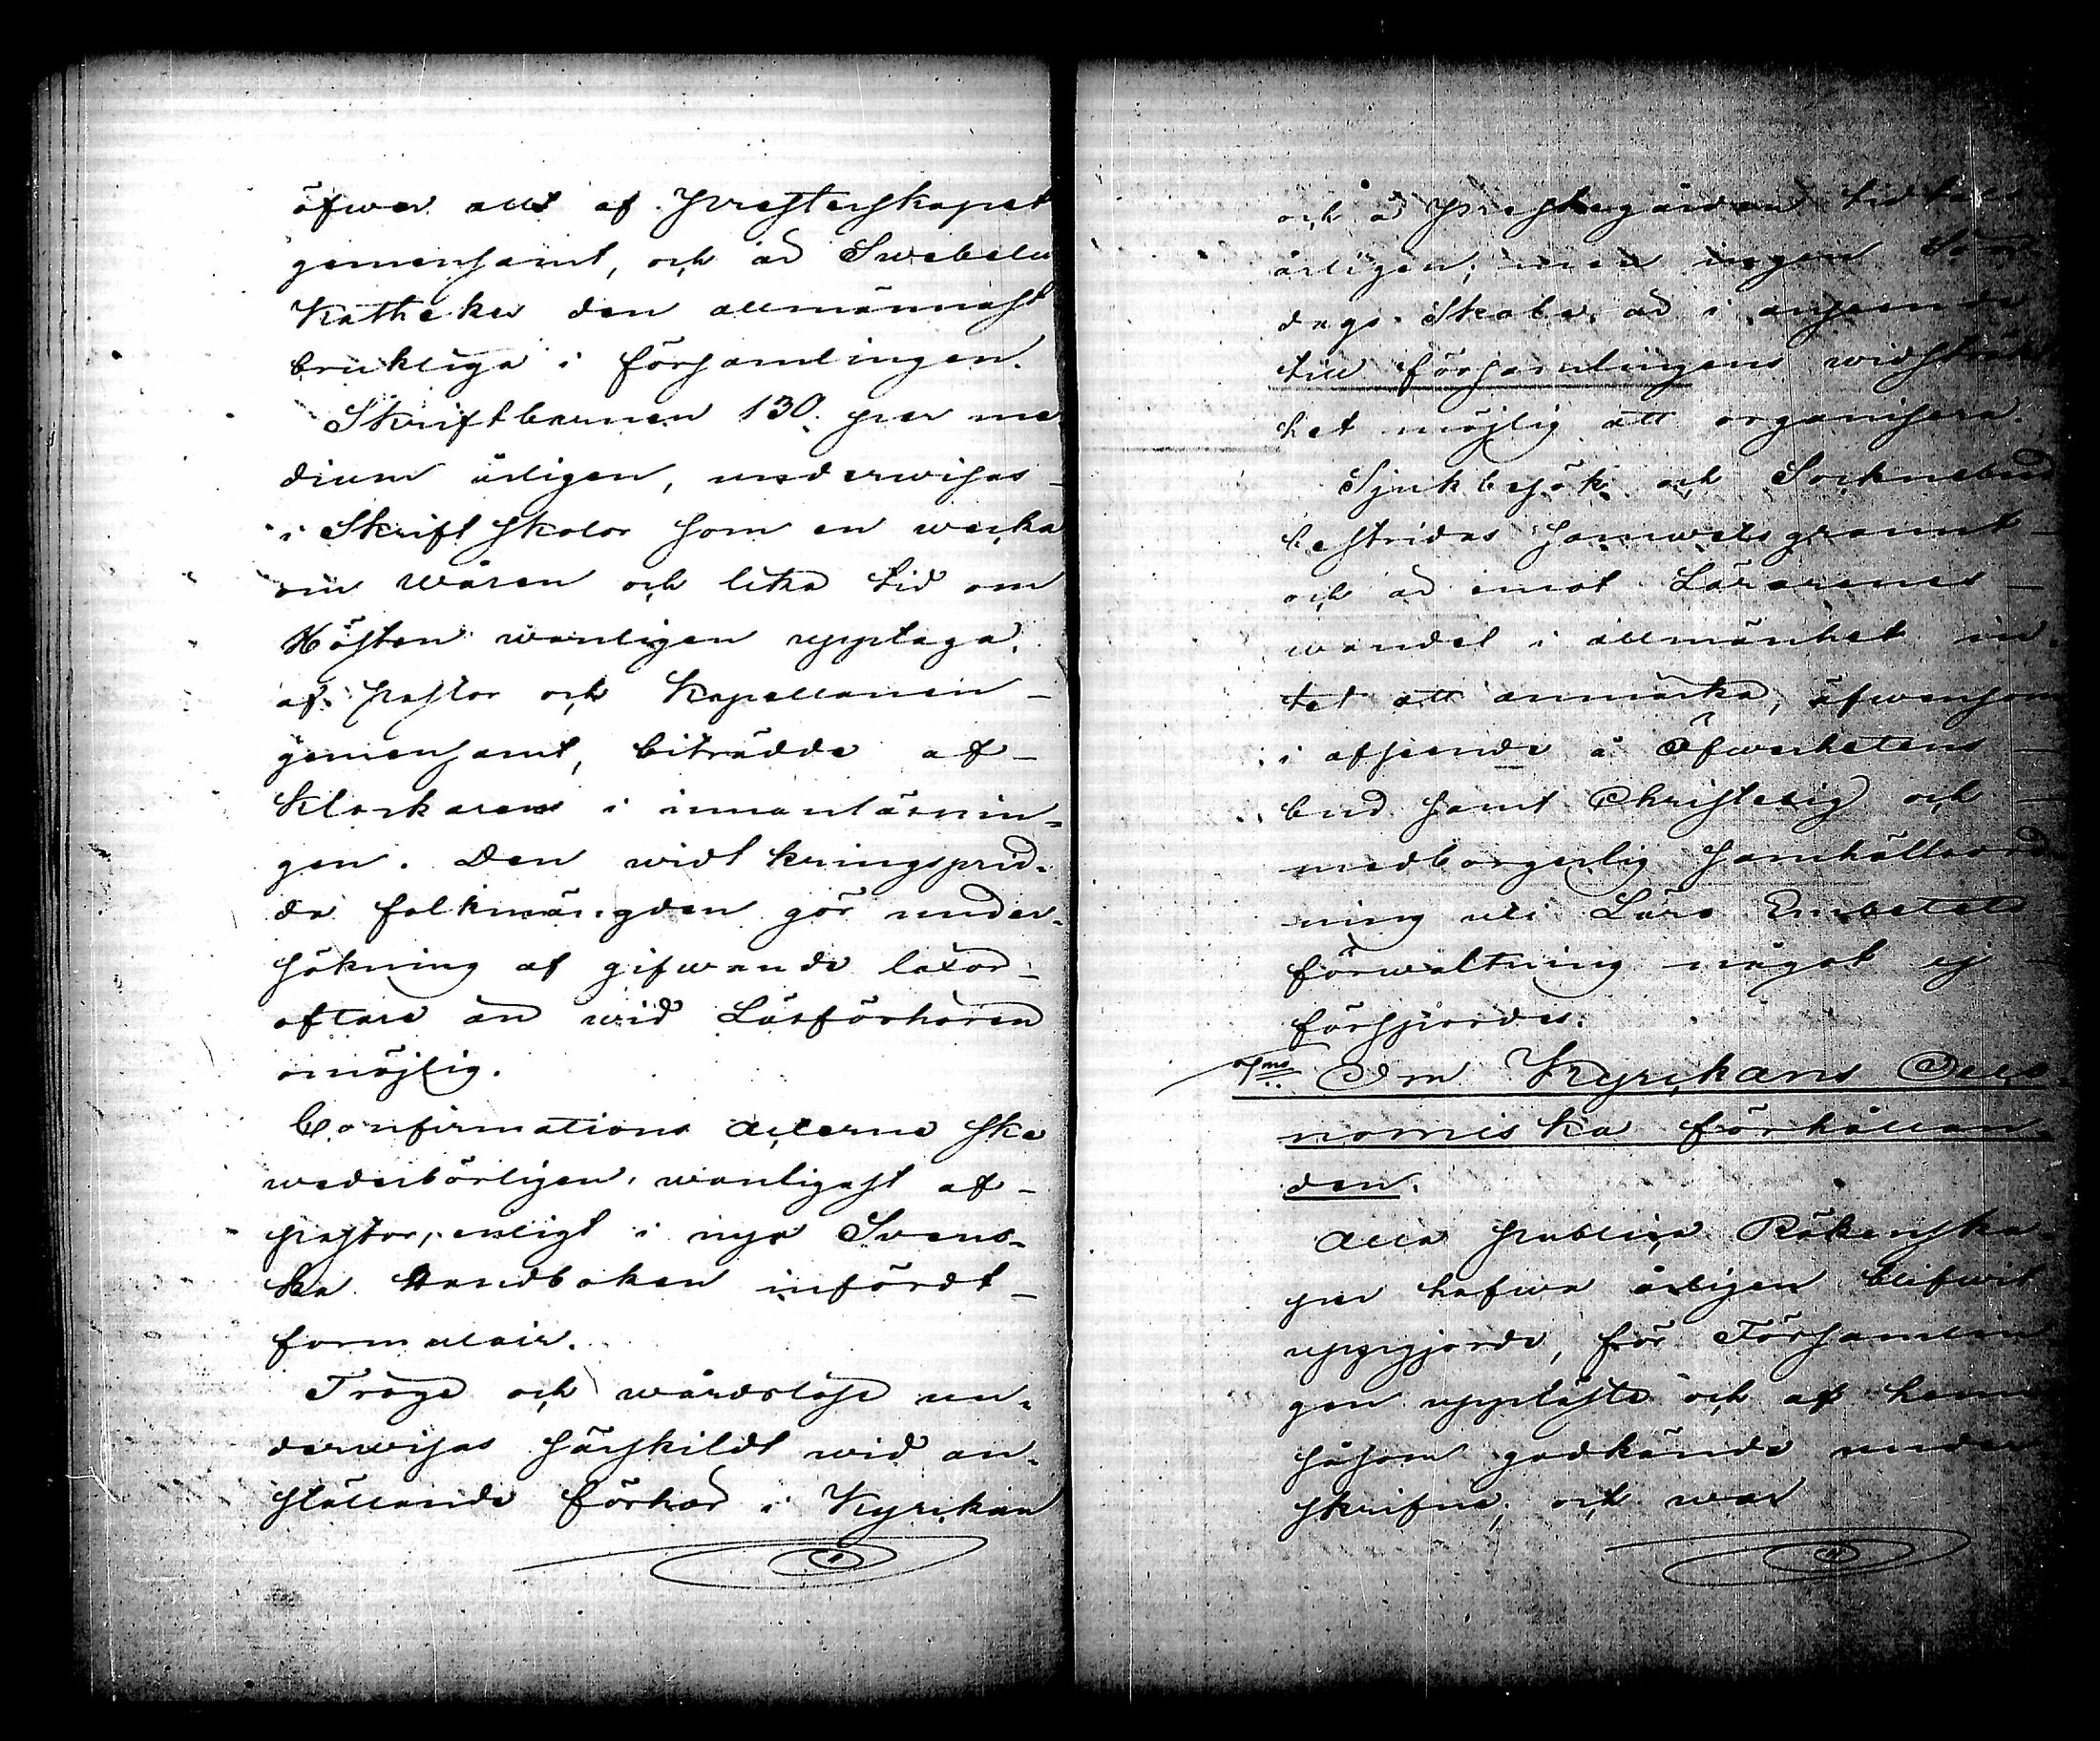 öfwer allt af Presterskapet
gemensamt, och är Swebelii
Katheches den allmännast
brukliga i församlingen.
Skriftbarnen 130. per me-
dium årligen, underwisas
i Skriftskolor som en wecka
om wåren och lika tid om
Hösten wanligen upptaga,
af Pastor och Kapellanen
gemensamt, biträdde af
Klockaren i innanläsnin-
gen. Den widt kringsprid-
da folkmängden gör under-
sökning af gifwande lexor
oftare än wid Läsförhören
omöjlig.
Confirmations Acterne ske
wederbörligen, wanligast af
pastor, enligt i nya Svens-
ka Handboken infördt
formulair.
Tröge och wårdslöse un-
derwisas särskildt wid an-
ställande förhör i Kyrckan
och å Prestegården tidtals
årligen; men ingen Sön-
dags-Skola är i anseende
till församlingens widsträckt-
het möjlig att organisera.
Sjukbesök och Socknebud
bestridas samwetsgrannt
och är emot Lärarenes
wandel i allmänhet in-
tet att anmärka, äfwensom
i afseende å Öfwerhetens
bud samt Christelig och
medborgerlig samhällsord-
ning uti Läro Embetets
förwaltning något ej
förspordes.
7mo Om Kyrckans Oeco-
nomiska förhållan-
den.
Alla publica Räkenska-
per hafwa årligen blifwit
uppgjorde, för Församlin
gen uppläste och af henne
såsom godkände under
skrifne; och war